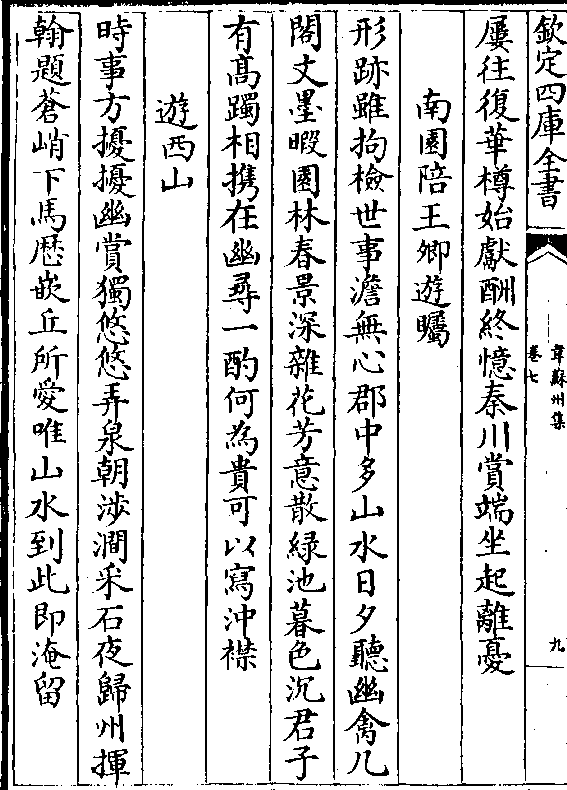 欽定四庫全書
韋蘇州集
卷七
九
屢往復華樽始獻酬終憶秦川賞端坐起離憂
南園陪王卿遊矚
形跡雖拘檢世事澹無心郡中多山水日夕聽幽禽几
閣文墨暇園林春景深雜花芳意散緑池暮色沉君子
有髙躅相携在幽尋一酌何為貴可以寫沖襟
遊西山
時事方擾擾幽賞獨悠悠弄泉朝涉澗采石夜歸州揮
翰題蒼峭下馬歴嵌丘所愛唯山水到此即淹留